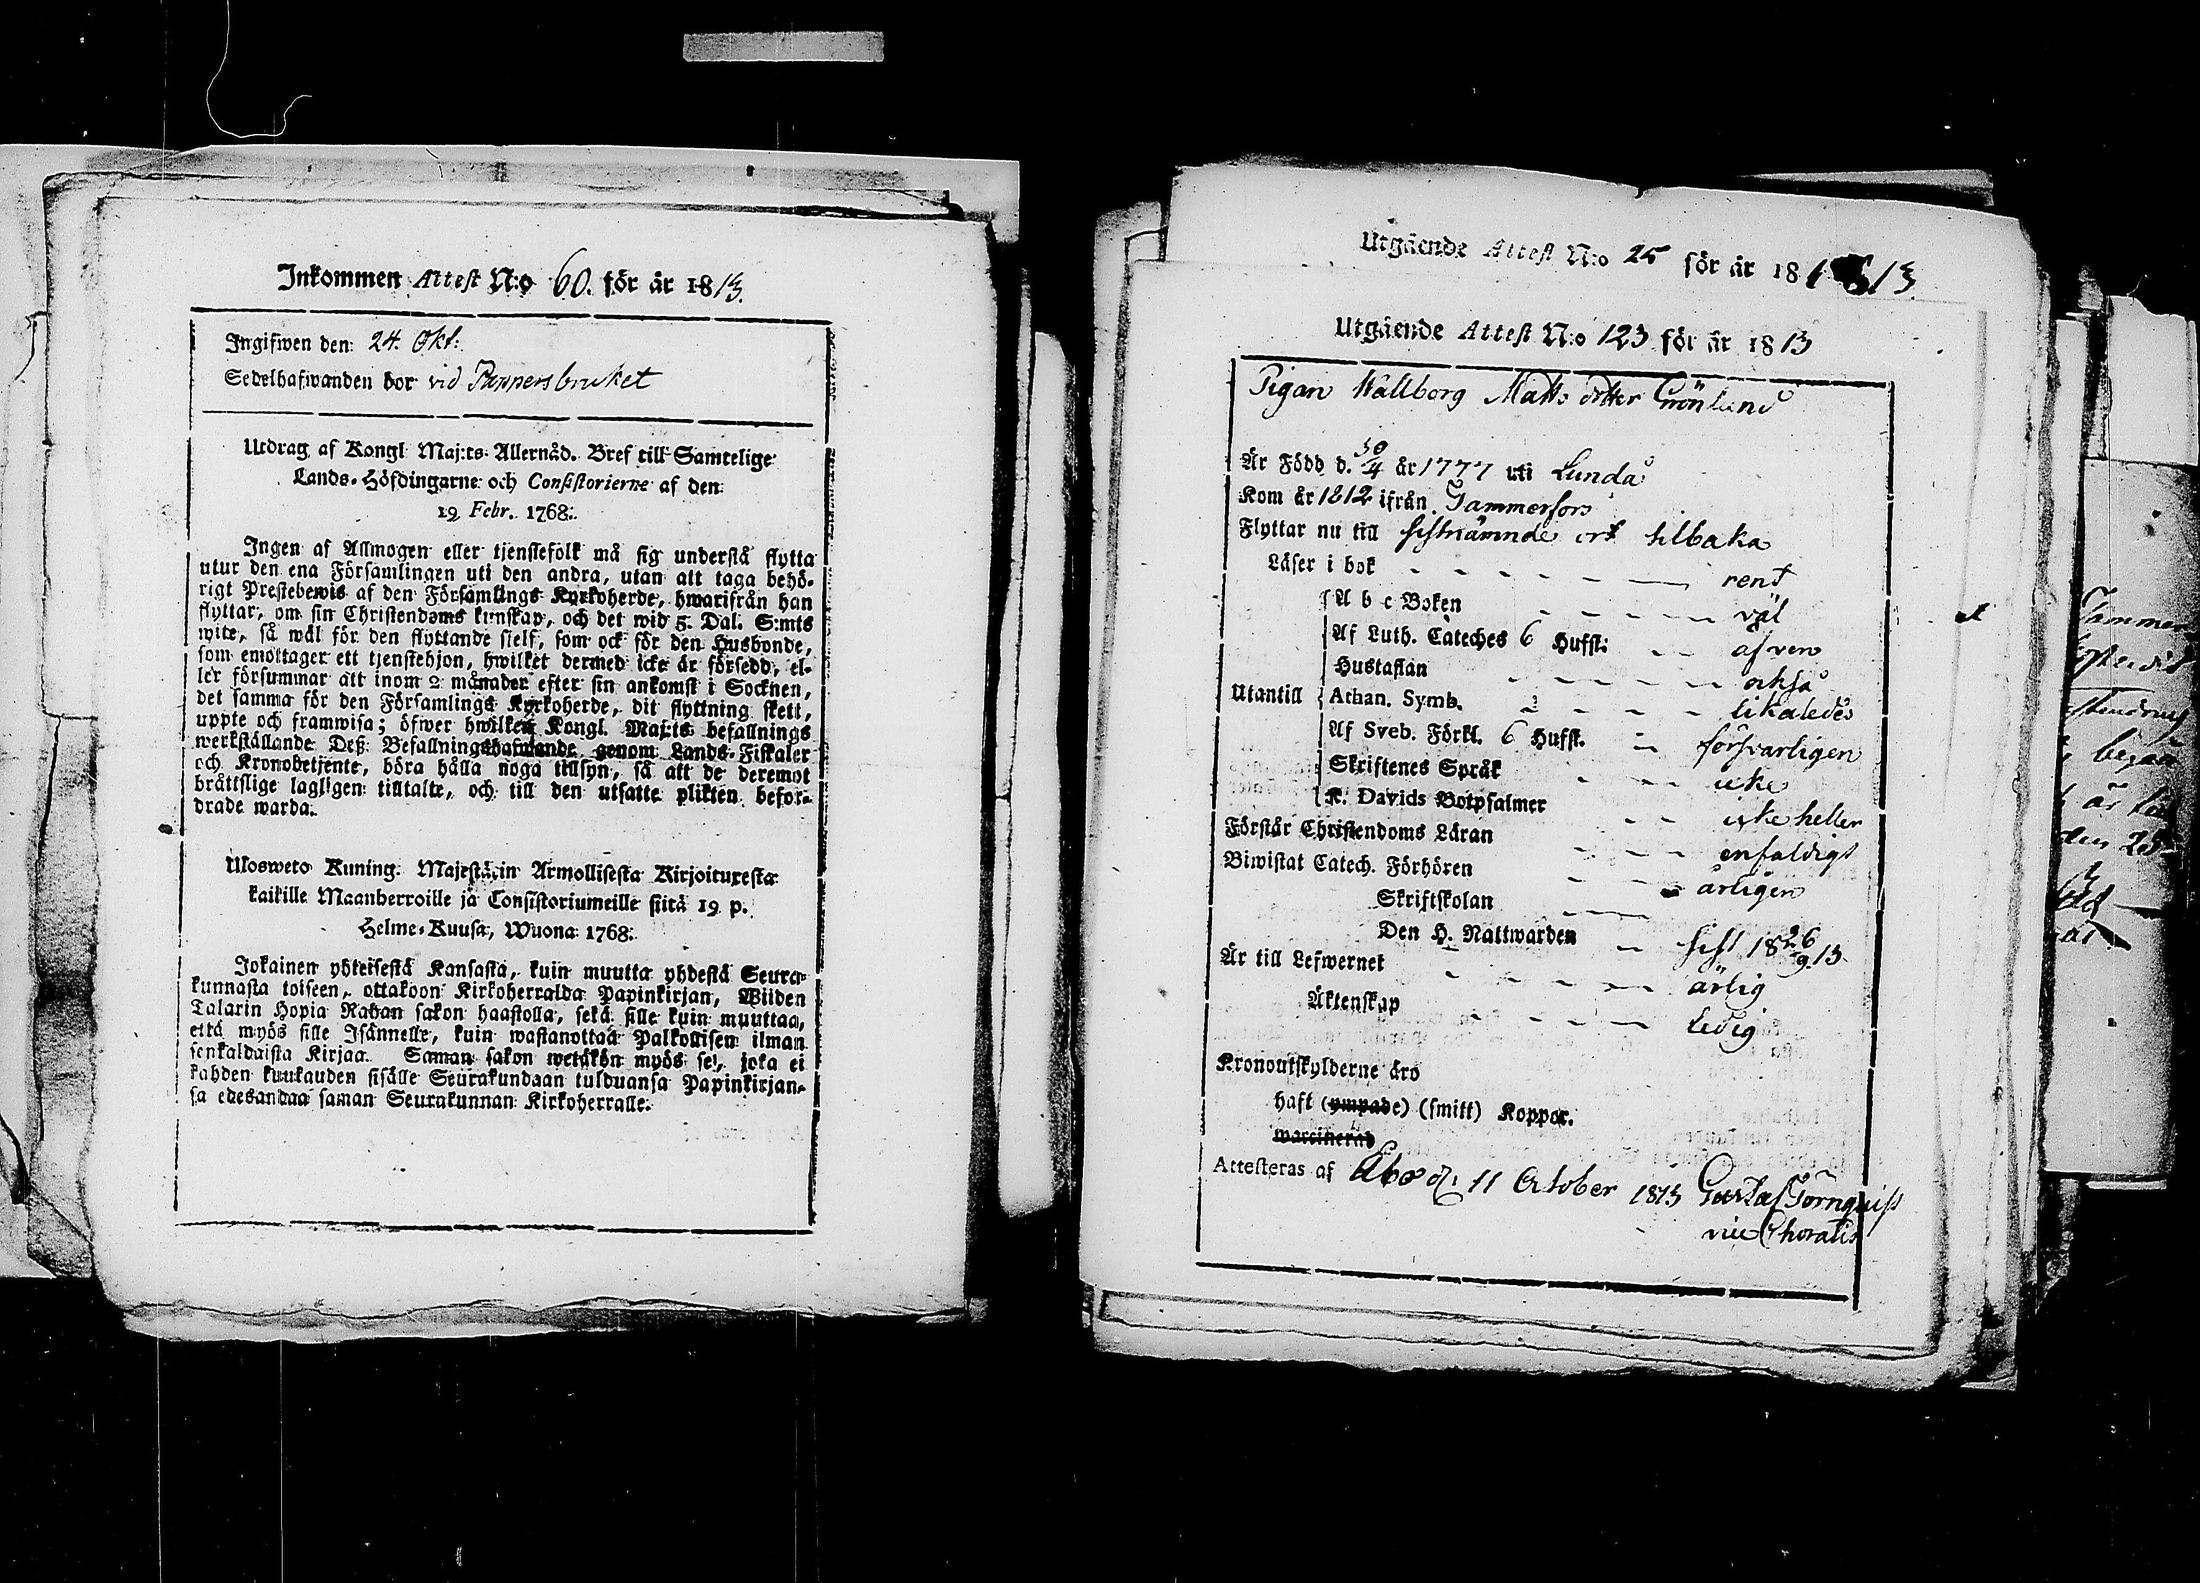 Inkommen Attest N:o 60. för år 1813.
Ingifwen den: 24. Okt:
Sedelhafwanden bor vid Pappersbruket
Utdrag af Kongl Maj:ts Allernåd. Bref till Samtelige
Lands-Höfdingarne och Consistorierne af den
19 Febr. 1768.
Ingen af Allmogen eller tjenstefolk må sig understå flytta
utur den ena Församlingen uti den andra, utan att taga behö-
rigt Prestebewis af den Församlings Kyrkoherde, hwarifrån han
flyttar, om sin Christendoms kunskap, och det wid 5. Dal. S:mts
wite, så wäl för den flyttande sielf, som ock för den Husbonde,
som emottager ett tjenstehjon, hwilket dermed icke är försedd, el-
ler försummar att inom 2 månader efter sin ankomst i Socknen,
det samma för den Församlings Kyrkoherde, dit flyttning skett,
uppte och framwisa; öfwer hwilken Kongl. Maj:ts befallnings
werkställande Deß Befallningshafwande genom Lands-Fiskaler
och Kronobetjente, böra hålla noga tillsyn, så att de deremot
bråttslige lagligen tilltalte, och till den utsatte plikten befor-
drade warda.
Ulosweto Kuning: Majestätin Armollisesta Kirjoituxesta
kaikille Maanherroille ja Consistoriumeille siitä 19 p.
Helme-Kuusa, Wuona 1768.
Jokainen yhteisestä Kansasta, kuin muutta yhdestä Seura-
kunnasta toiseen, ottakoon Kirkoherralda Papinkirjan, Wiiden
Talarin Hopia Rahan sakon haastolla, sekä sille kuin muuttaa,
että myös sille Isännelle, kuin wastanottaa Palkollisen ilman
senkaldaista Kirjaa. Saman sakon wetäkön myös se, joka ei
kahden kuukauden sisälle Seurakundaan tulduansa Papinkirjan-
sa edesandaa saman Seurakunnan Kirkoherralle.
Utgående Attest N:o 25 för år 181 13.
Utgående Attest N:o 123 för år 1813
Pigan Wallborg Matts dotter Grönlund
Är Född d. 30/4 år 1777 uti Lunda
Kom år 1812 ifrån Tammerfors
Flyttar nu till sistnämnde ort tilbaka
Läser i bok - - - - - rent
A b c Boken - - - - väl
Af Luth. Cateches 6 Hufst: - - äfven
Hustaflan - - - - - också
Utantill Athan. Symb. - - - - likaledes
Af Sveb. Förkl. 6 Hufst. - försvarligen
Skriftenes Språk - - - icke
K. Davids Botpsalmer - - icke heller
Förstår Christendoms Läran - - - enfaldigt
Biwistat Catech. Förhören - - - årligen
Skriftskolan - - -
Den H. Nattwarden - sist 18 26/9 13
Är till Lefwernet - - - - - ärlig
Äktenskap - - - - ledig
Kronoutskylderne äro
haft (ympade) (smitt) Koppor.
waccinerad
Attesteras af Åbo d. 11 October 1813 Gustaf Törnquist
vice Choralis
Tammer